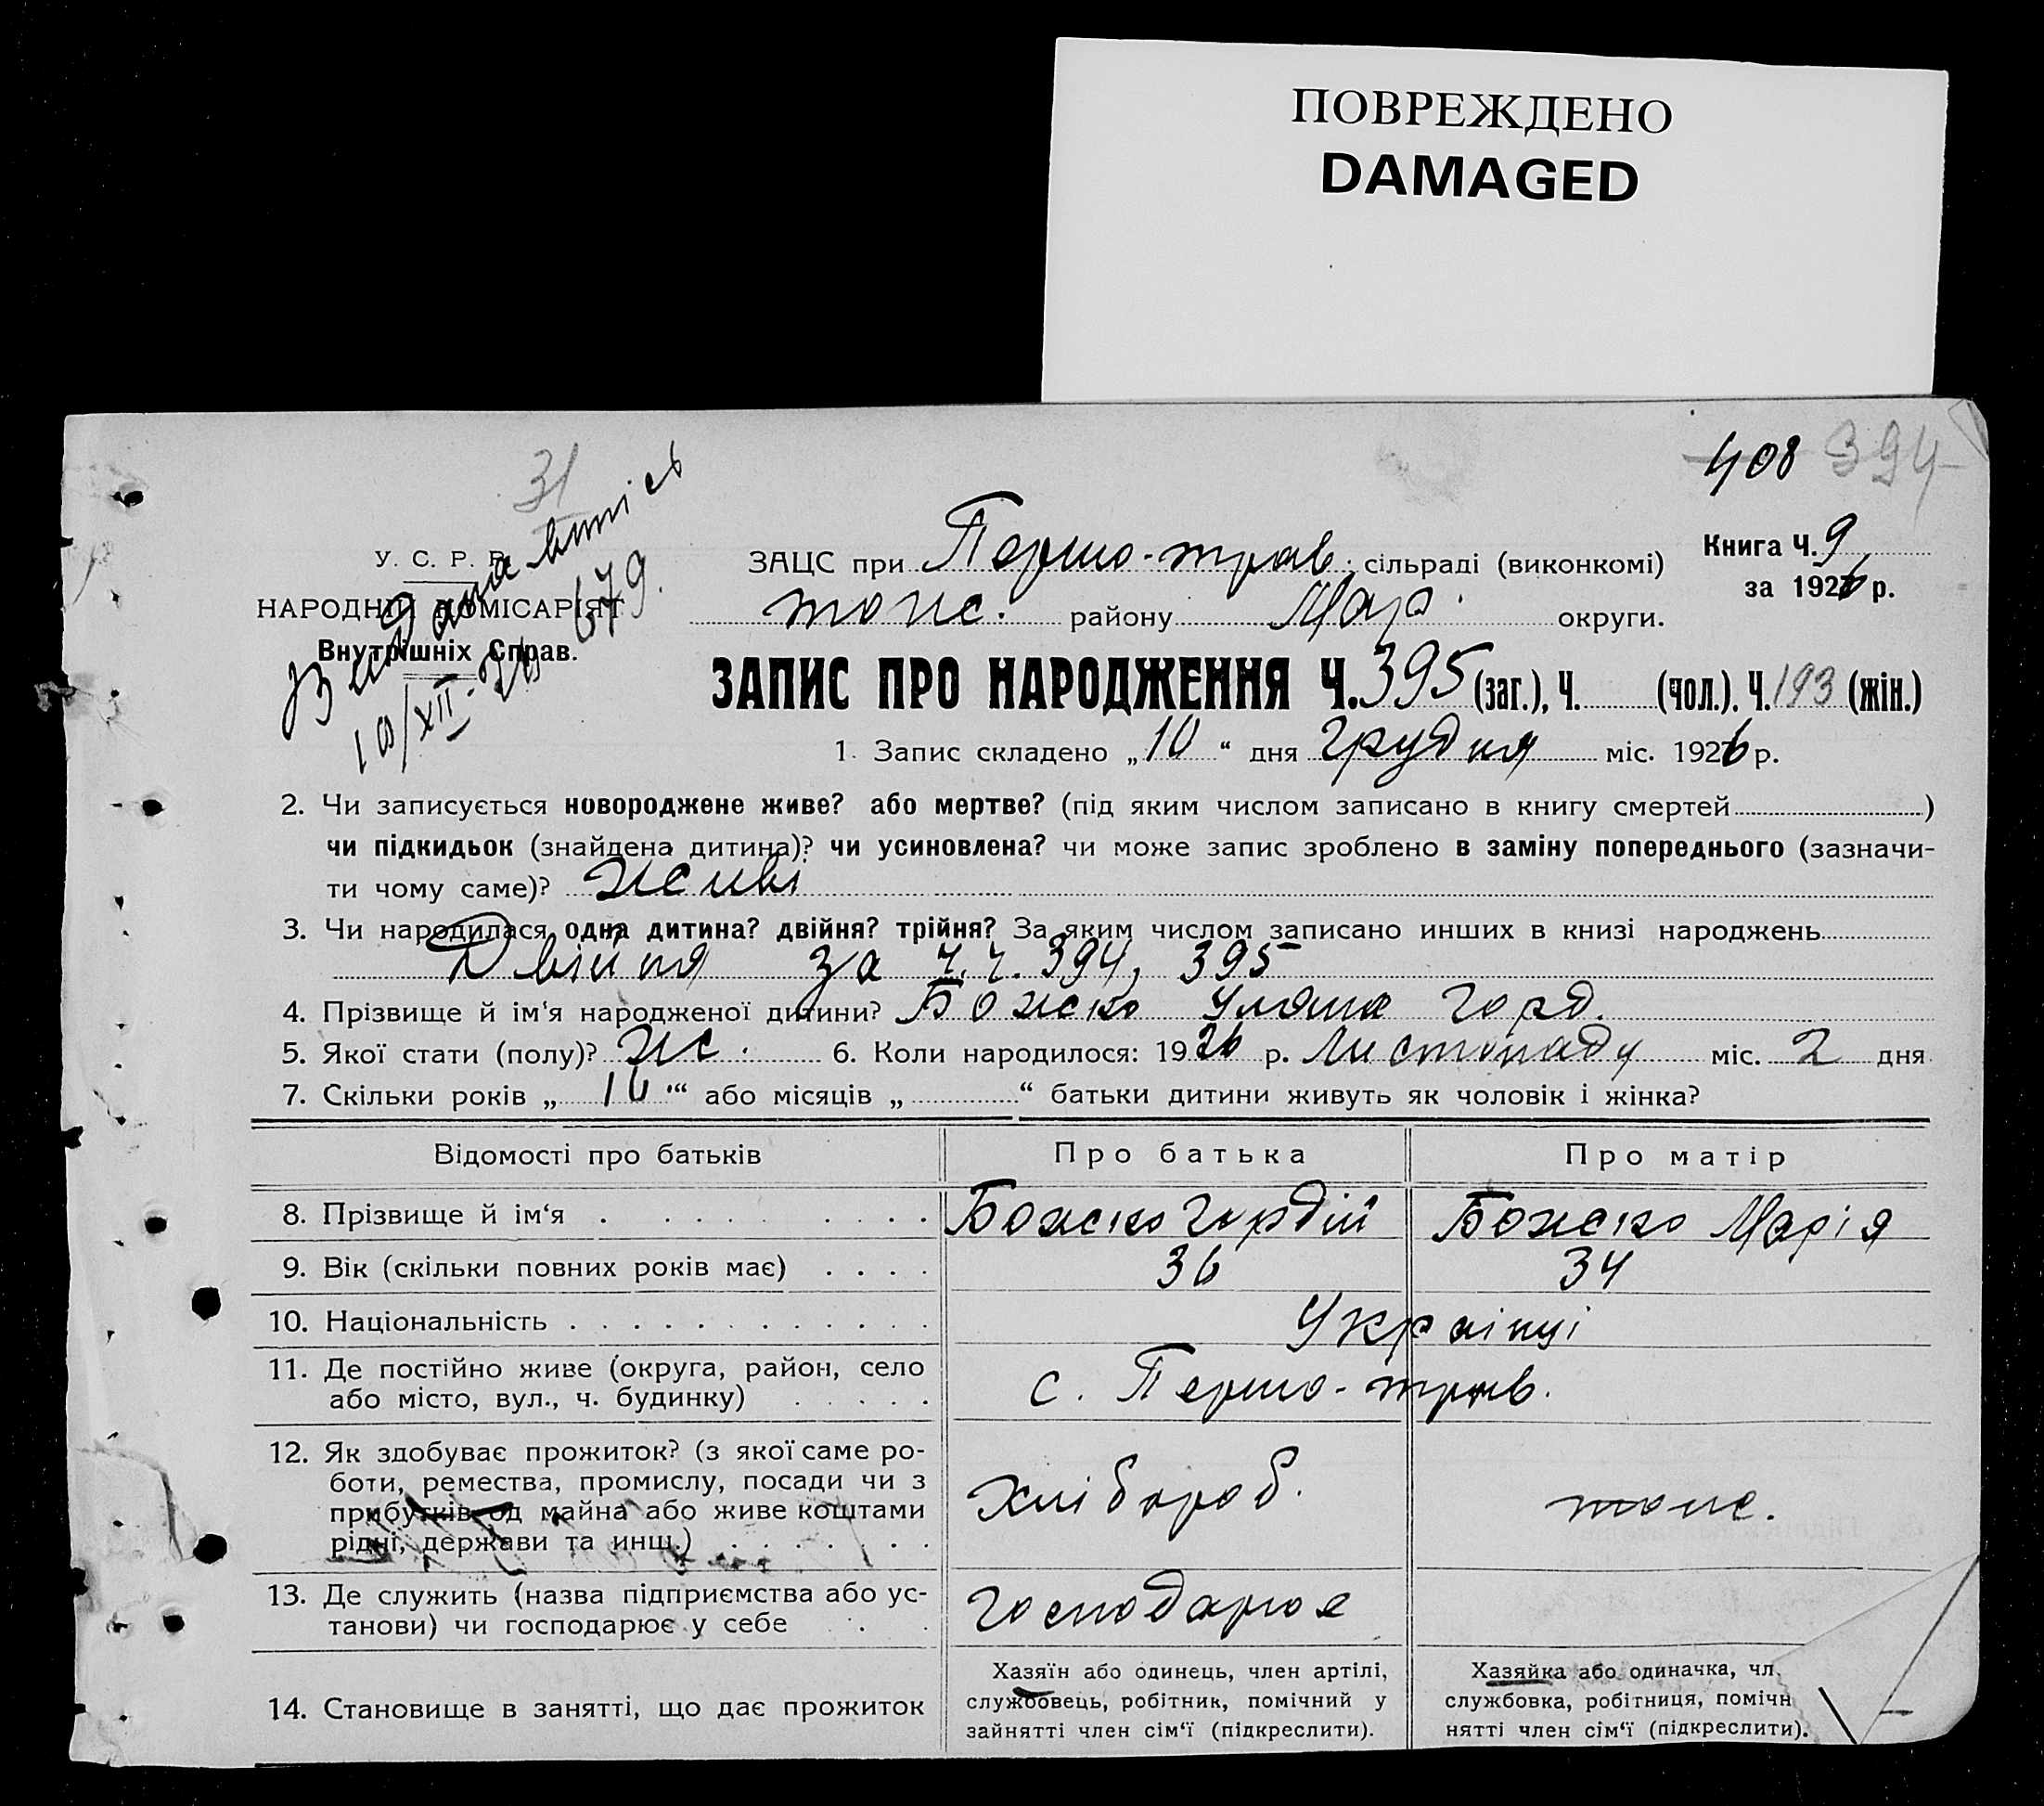 ПОВРЕЖДЕНО
DAMAGED
408 394
31
Видана витпісь
10/XII-26 679.
У. С. Р. Р.
НАРОДНІЙ КОМІСАРІЯТ
Внутрішніх Справ.
ЗАЦС при Першо-трав. сільраді (виконкомі)
Книга Ч. 9
за 1926 р.
тоже. району Мар. округи.
ЗАПИС ПРО НАРОДЖЕННЯ Ч. 395 (заг.), Ч. (чол.). Ч. 193 (жін.)
1. Запис складено „10“ дня грудня міс. 1926 р.
2. Чи записується новороджене живе? або мертве? (під яким числом записано в книгу смертей )
чи підкидьок (знайдена дитина)? чи усиновлена? чи може запис зроблено в заміну попереднього (зазначи-
ти чому саме)? живі
3. Чи народилася одна дитина? двійня? трійня? За яким числом записано инших в книзі народжень
Двійня за ч.ч. 394, 395
4. Прізвище й ім‘я народженої дитини? Божко Уляна Горд.
5. Якої стати (полу)? ж. 6. Коли народилося: 1926 р. Листопаду міс. 2 дня
7. Скільки років „16“ або місяців „ “ батьки дитини живуть як чоловік і жінка?
Відомості про батьків Про батька Про матір
8. Прізвище й ім‘я Божко Гордій Божко Марія
9. Вік (скільки повних років має) 36 34
10. Національність Українці
11. Де постійно живе (округа, район, село
або місто, вул., ч. будинку) с. Першо-трав.
12. Як здобуває прожиток? (з якої саме ро-
боти, ремества, промислу, посади чи з
прибутків од майна або живе коштами
рідні, держави та инш.) Хлібороб. тоже.
13. Де служить (назва підприємства або ус-
танови) чи господарює у себе Господарює
14. Становище в занятті, що дає прожиток
Хазяїн або одинець, член артілі,
службовець, робітник, помічний у
зайнятті член сім‘ї (підкреслити).
Хазяйка або одиначка, чл.
службовка, робітниця, помічн
нятті член сім‘ї (підкреслити).